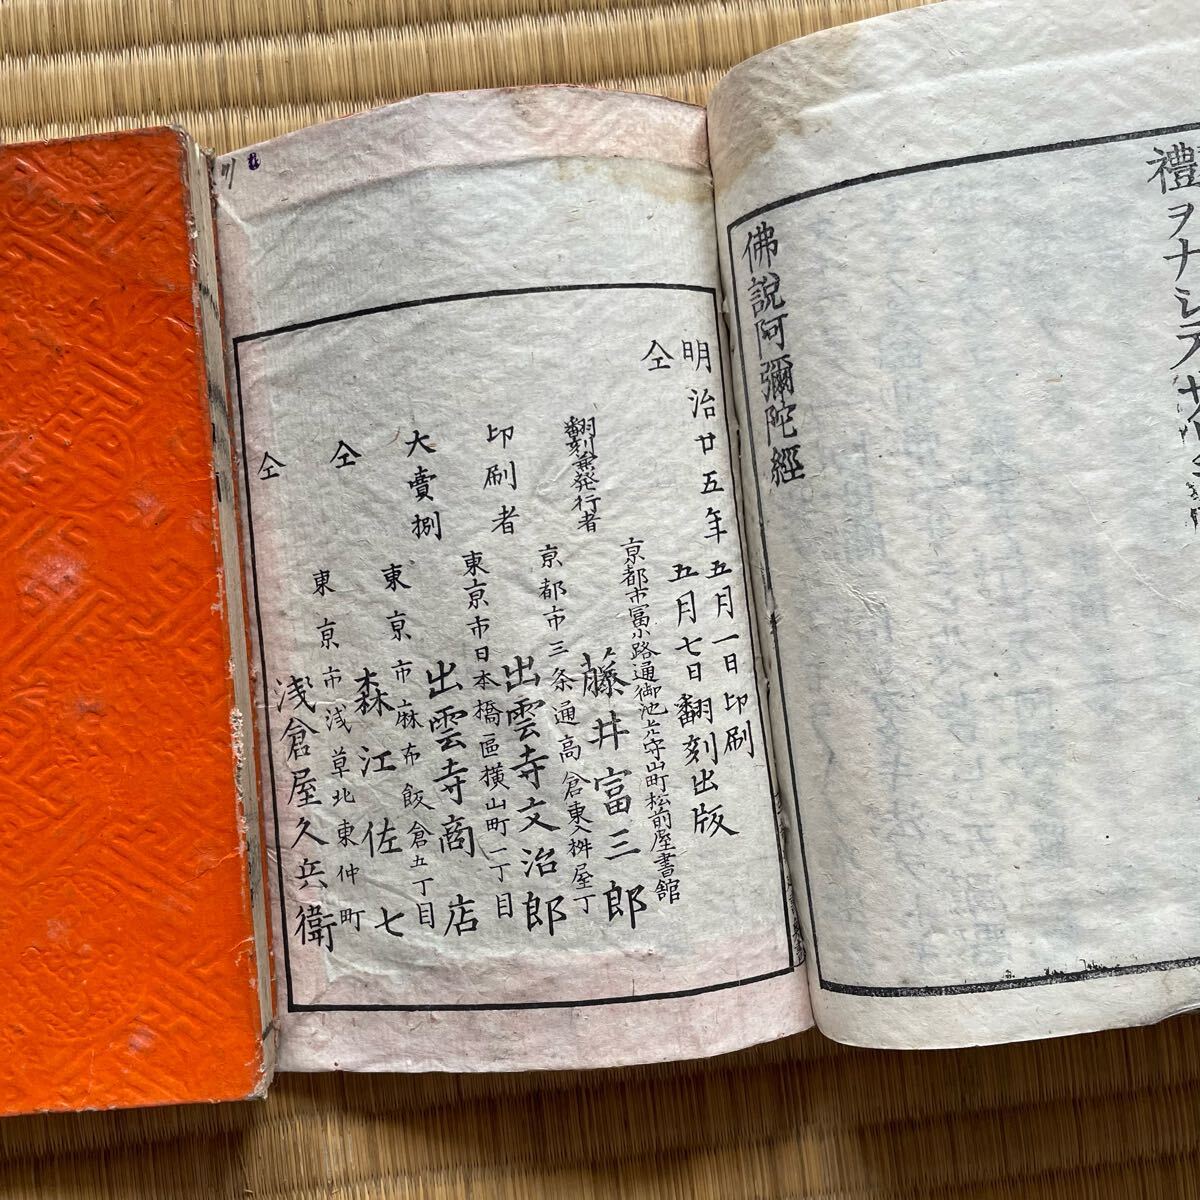 禮ヲナシテ
佛說阿彌陀經
明治廿五年五月一日印刷
仝 五月七日翻刻出版
京都市冨小路通御池上守山町松前屋書館
翻刻兼発行者 藤井富三郎
京都市三条通高倉東入桝屋丁
印刷者 出雲寺文治郎
東京市日本橋區横山町一丁目
大賣捌 出雲寺商店
東京市麻布飯倉五丁目
仝 森江佐七
東京市浅草北東仲町
仝 浅倉屋久兵衛